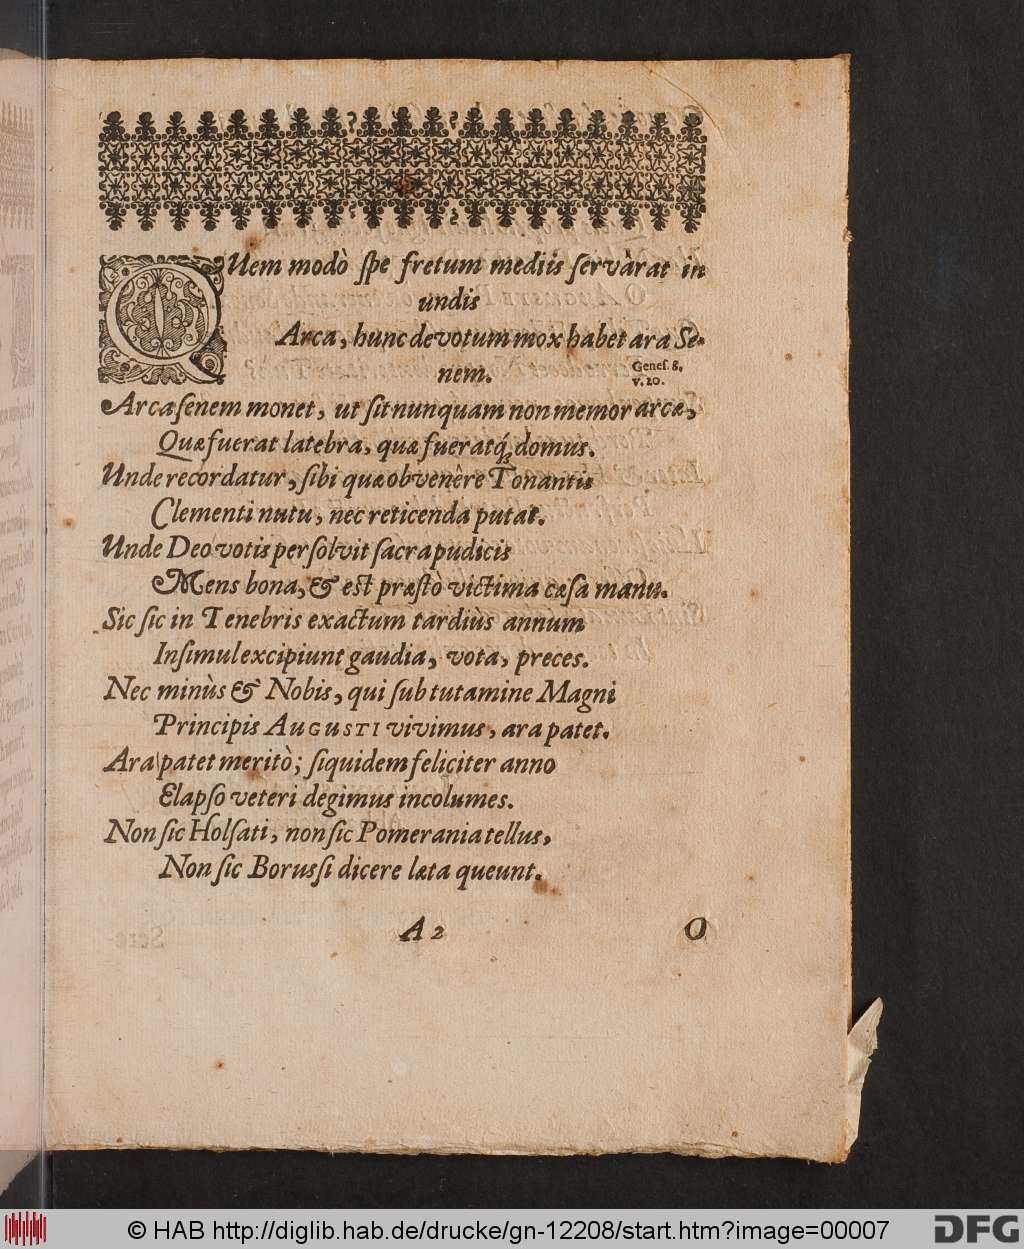 QUem modò ſpe fretum mediis ſervârat in
undis
Arca, hunc devotum mox habet ara Se-
nem.
Geneſ. 8.
v. 20.
Arca ſenem monet, ut ſit nunquam non memor arcæ,
Quæ fuerat latebra, quæ fueratq́; domus.
Unde recordatur, ſibi quæ obvenêre Tonantis
Clementi nutu, nec reticenda putat.
Unde Deo votis perſolvit ſacra pudicis
Mens bona, & eſt præſtò victima cæſa manu.
Sic ſic in Tenebris exactum tardiùs annum
Inſimul excipiunt gaudia, vota, preces.
Nec minùs & Nobis, qui ſub tutamine Magni
Principis AUGUSTI vivimus, ara patet.
Ara patet meritò; ſiquidem feliciter anno
Elapſo veteri degimus incolumes.
Non ſic Holſati, non ſic Pomerania tellus,
Non ſic Borusſi dicere læta queunt.
A 2
O
© HAB http://diglib.hab.de/drucke/gn-12208/start.htm?image=00007
DFG